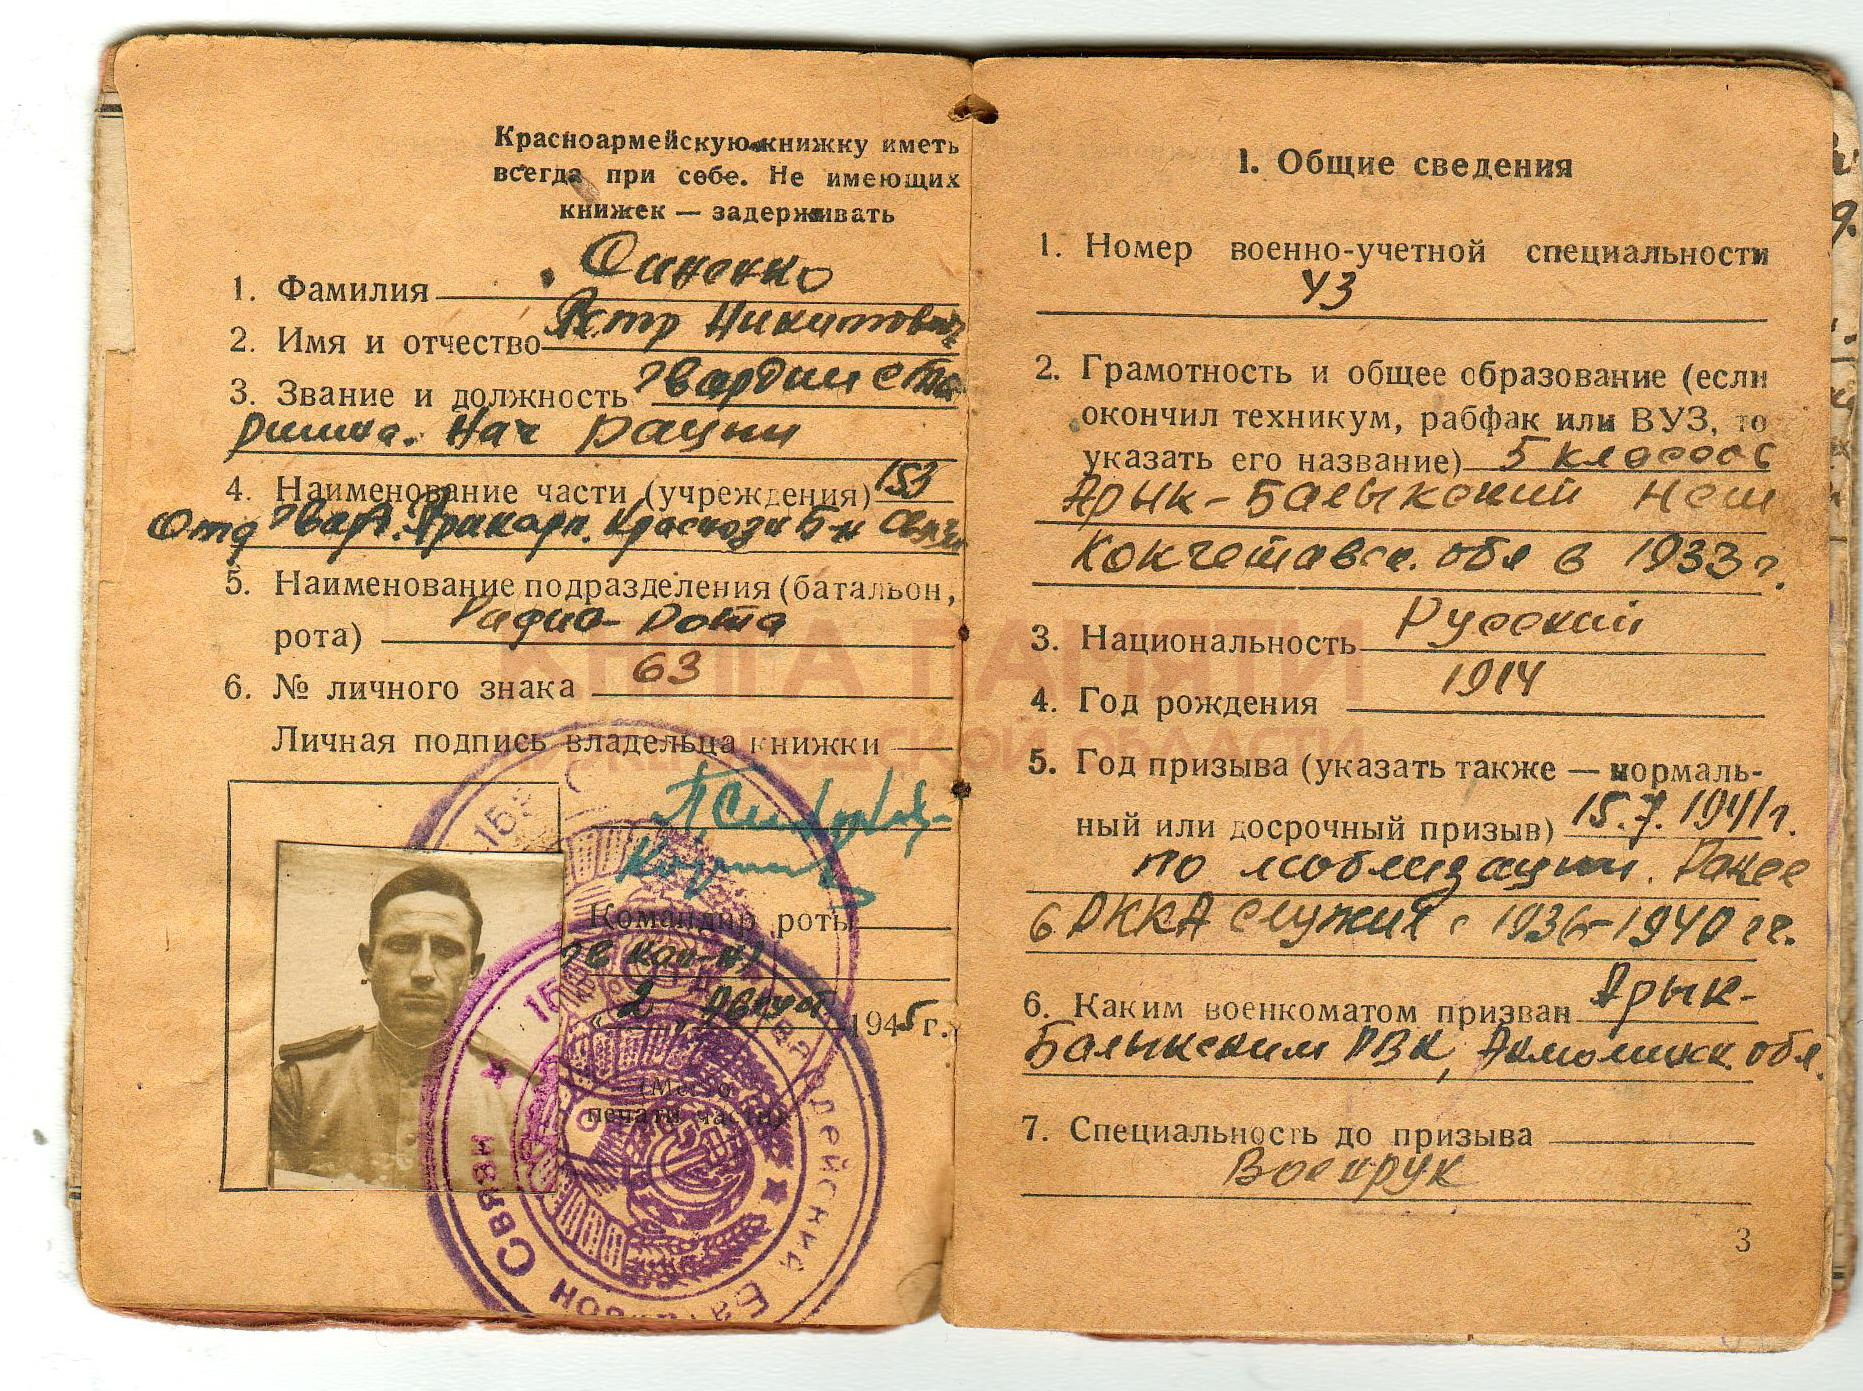 Красноармейскую книжку иметь
всегда при себе. Не имеющих
книжек — задерживать
1. Фамилия Синенко
2. Имя и отчество Петр Никитович
3. Звание и должность Гвардии стар
шина. Нач рации
4. Наименование части (учреждения) 153
отд Гвар. Прикарп. Красноз Б-н Связи
5. Наименование подразделения (батальон,
рота) Радио-рота
6. № личного знака 63
Личная подпись владельца книжки
Командир роты
гв кап-н
„2“ Август 1945 г.
(Место
печати части)
153
Гвардейский Батальон Связи
1. Общие сведения
1. Номер военно-учетной специальности
43
2. Грамотность и общее образование (если
окончил техникум, рабфак или ВУЗ, то
указать его название) 5 классов
Арык-Балыкский
Кокчетавск. обл в 1933 г.
3. Национальность Русский
4. Год рождения 1914
5. Год призыва (указать также — нормаль-
ный или досрочный призыв) 15.7.1941 г.
по мобилизации. Ранее
в РККА служил с 1936-1940 гг.
6. Каким военкоматом призван Арык-
Балыкским РВК, Акмолинск. обл.
7. Специальность до призыва
Военрук
3
КНИГА ПАМЯТИ
НИЖЕГОРОДСКОЙ ОБЛАСТИ